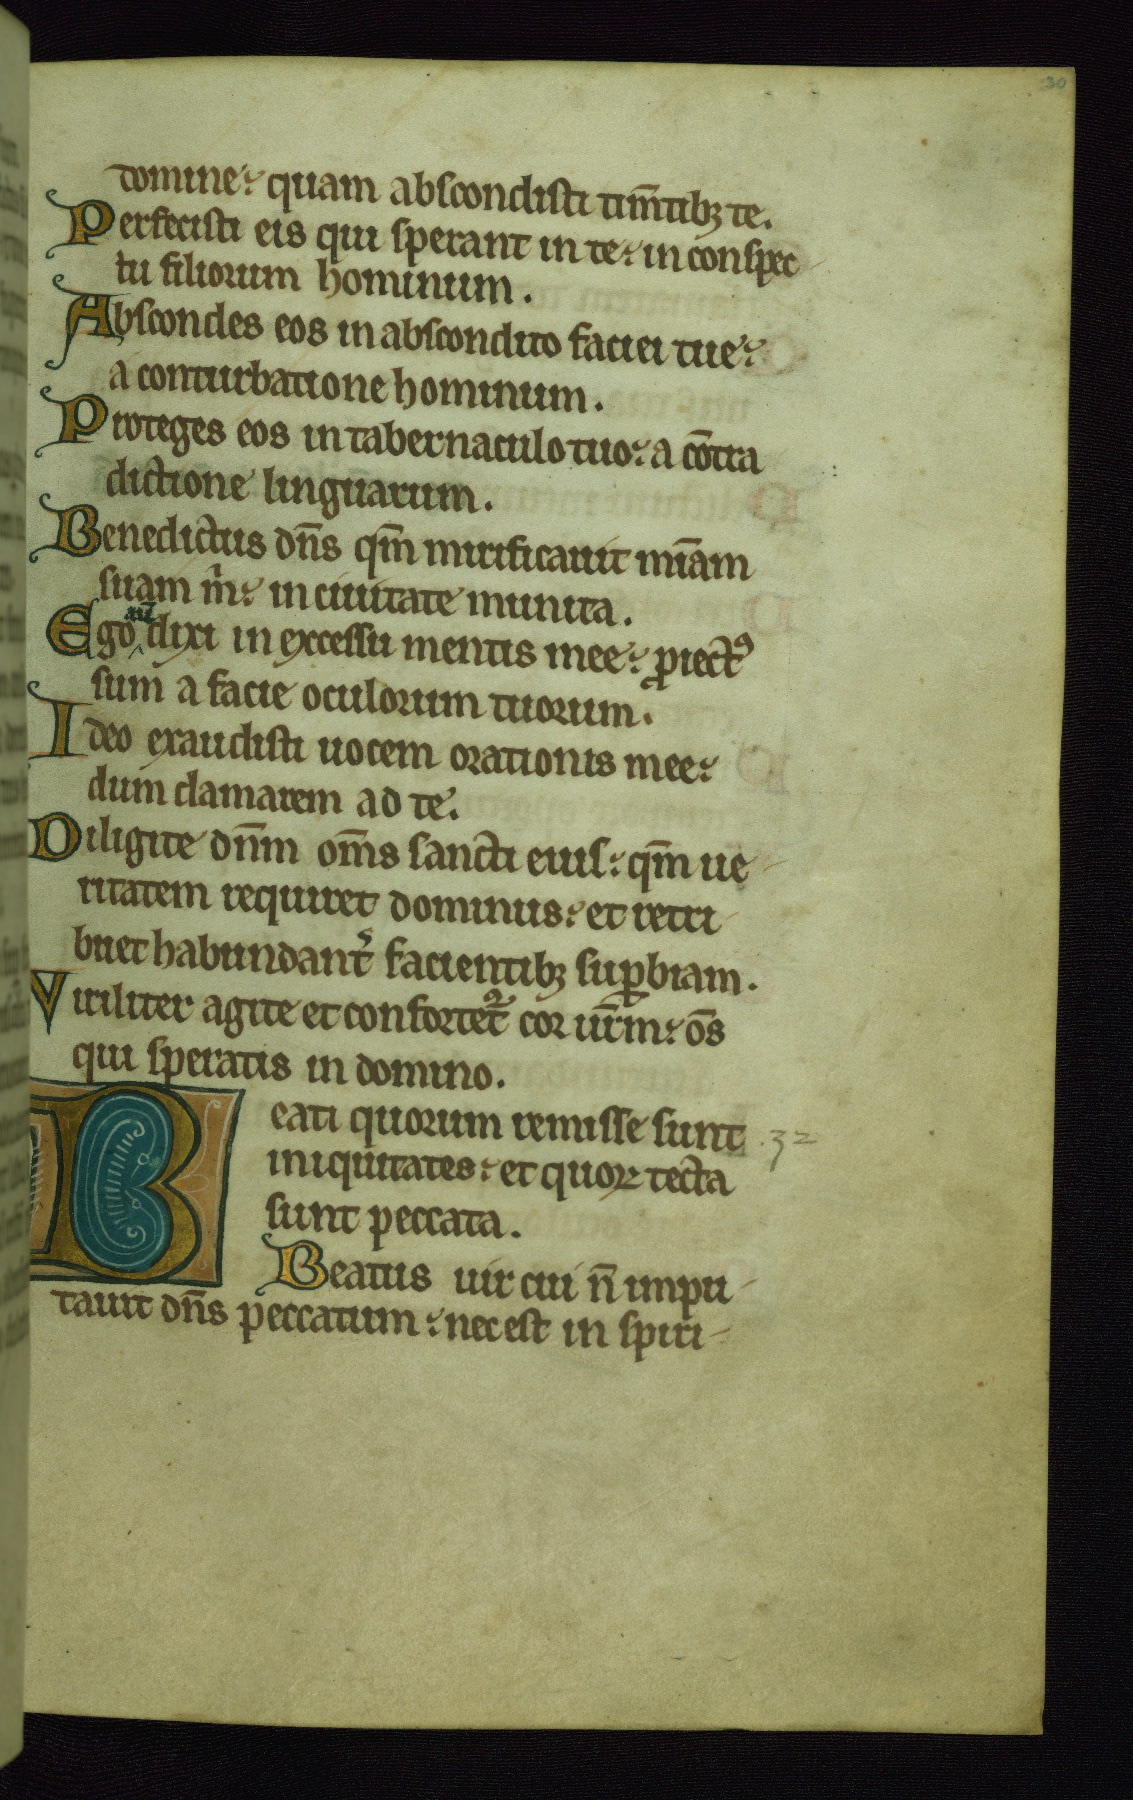 30
domine: quam abscondisti tim̄tibꝫ te.
Perfecisti eis qui sperant in te: in conspec
tu filiorum hominum.
Abscondes eos in abscondito faciei tue:
a conturbatione hominum.
Proteges eos in tabernaculo tuo: a cōtra
dictione linguarum.
Benedictus dn̄s qm̄ mirificauit mīam
suam m̄: in ciuitate munita.
Ego aū dixi in excessu mentis mee: ꝓiectꝰ
sum a facie oculorum tuorum.
Ideo exaudisti uocem orationis mee:
dum clamarem ad te.
Diligite dn̄m om̄s sancti eius: qm̄ ue
ritatem requiret dominus: et retri
buet habundant̄ facientibꝫ suꝑbiam.
Viriliter agite et confortet᷑ cor ur̄m: om̄s
qui speratis in domino.
Beati quorum remisse sunt 32
iniquitates: et quoꝝ tecta
sunt peccata.
Beatus uir cui n̄ impu
tauit dn̄s peccatum: nec est in spiri